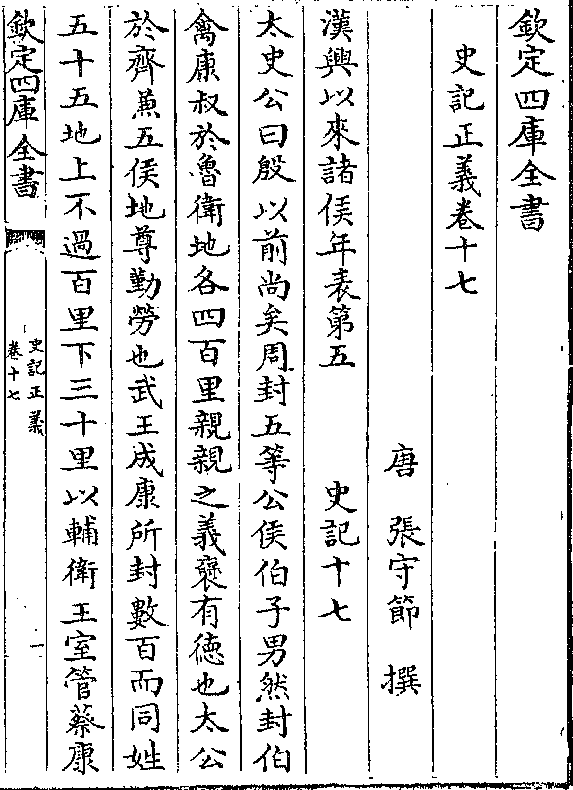 欽定四庫全書
史記正義卷十七
唐　張守節　撰
漢興以來諸侯年表第五　史記十七
太史公曰殷以前尚矣周封五等公侯伯子男然封伯
禽康叔於魯衛地各四百里親親之義襃有徳也太公
於齊兼五侯地尊勤勞也武王成康所封數百而同姓
五十五地上不過百里下三十里以輔衛王室管蔡康
欽定四庫全書
史記正義
卷十七
一